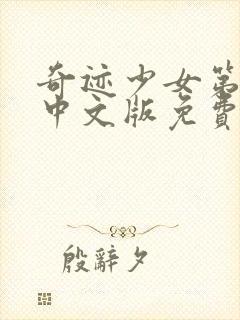 奇迹少女第
中文版免費
殷辭夕